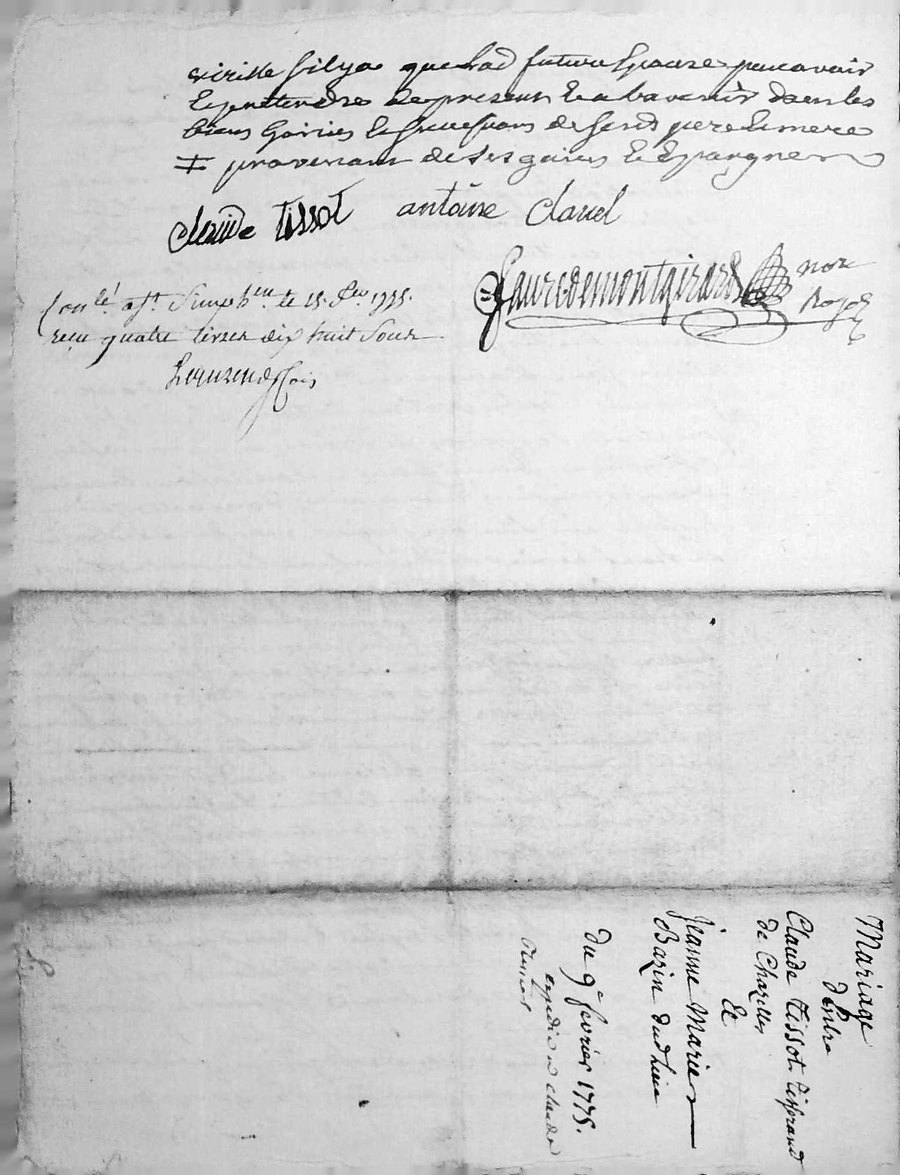 que lad future Epouse peut avoir
Et prettendre de present Et a lavenir dans les
biens hoiries Et successions de sesd pere Et mere
‡ provenant de ses gaiens Et Epargnes
claude tissot antoine clavel
fauredemontgirard nore
Royal
Conlé. a St. Simphen le 15. feo 1775.
reçu quatre livres dix huit sous
Mariage
d'Entre
Claude tissot tisserand
de Chazelles
Et
Jeanne Marie
Bazin dud lieu
du 9e. fevrier 1775.
expedié a claude